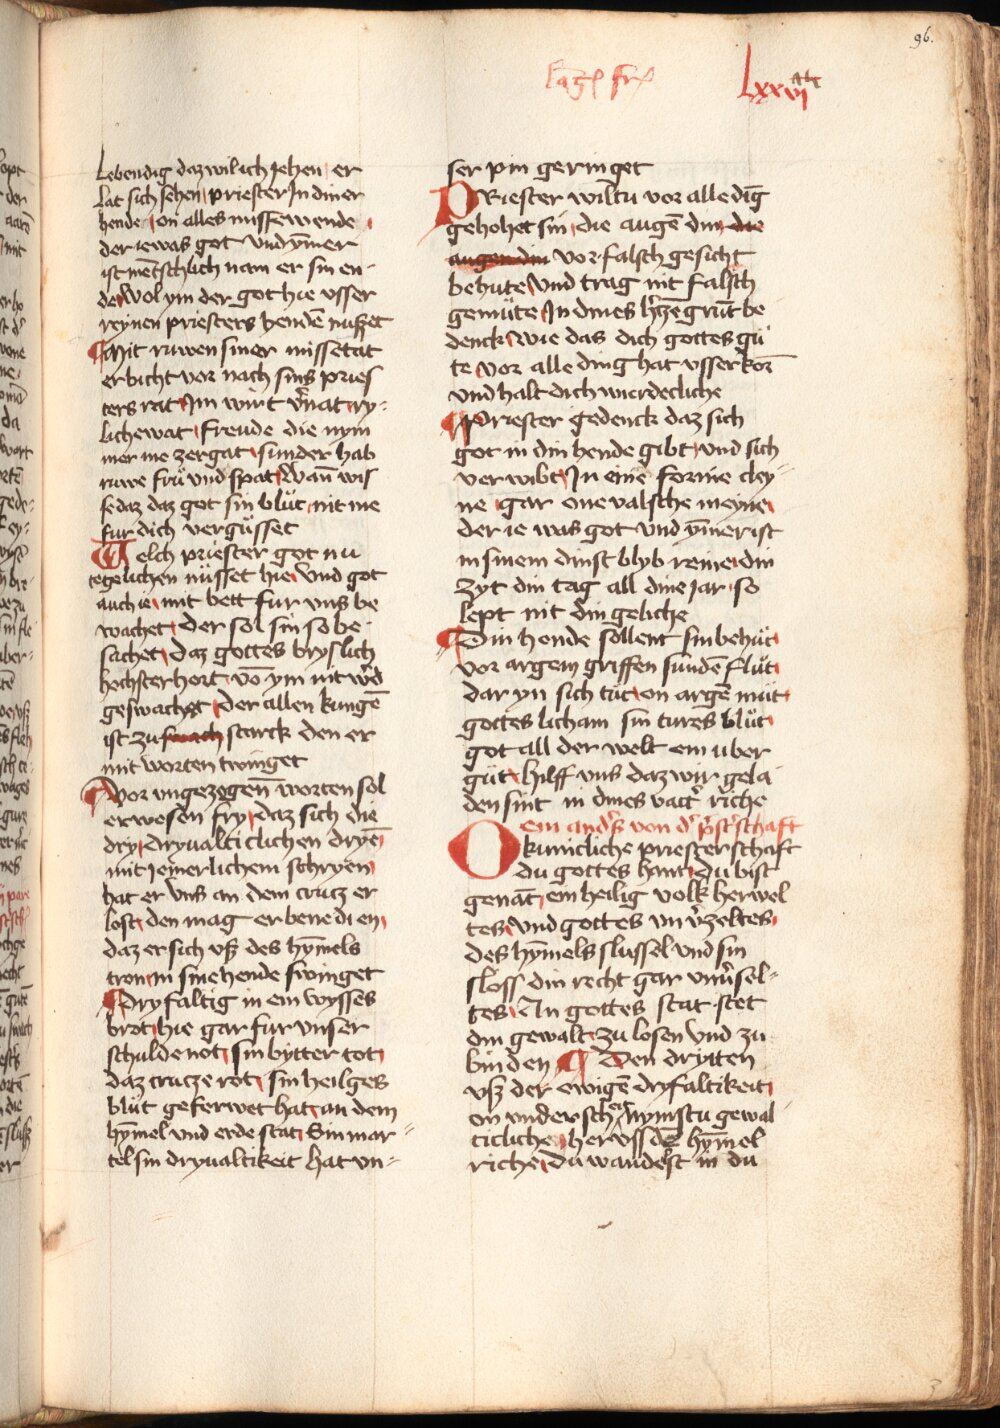 96.
Lxxvi
Lebendig daz wil ich Jehen er
Lat sich sehen priester In diner
hende on alles missewende
der ie was got vnd ym̄er
ist mentschlich nam er sin en-
de wol ym der got hie vsser
reynen priesters henden nusset
Mit ruwen siner missetat
er bicht vor nach sins pries
ters rat Im wirt v̄nat ry-
liche wat freude die nym
mer me zergat sunder hab
ruwe fru vnd spat Wan̄ wis
se daz daz got sin blut nit me
fur dich vergusset
Welch priester got nu
tegelichen nusset hie vnd got
auch ie mit bett fur vns be
wachet der sol sin so be-
sachet daz gottes bryslich
hochster hort vō ym nit w̄d
geswachet der allen kungē
ist zu swach starck den er
mit worten twinget
Vor vngezogenē worten sol
er wesen fry daz sich die
dry dryualticlichen dryē
mit jemerlichem schryen
hat er vns an dem crucz er
lost den mag er benedien
daz er sich vß des hȳmels
tron in sine hende swinget
Dryfaltig in ein wysses
brot hie gar fur vnser
schulde not sin bytter tot
daz crucze rot sin heilges
blut geferwet hat an dem
hȳmel vnd erde stat Sin mar-
tel sin dryualtikeit hat vn-
ser pin geringet
PRiester wiltu vor alle dīg
gehohet sin die augē din die
augen din vor falsch gesicht
behute vnd trag nit falsch
gemute In dines h̄tzē grūt be
denck wie das dich gottes gu
te vor alle ding hat vsserkorn
vnd halt dich wirdecliche
Priester gedenck daz sich
got in din hende gibt vnd sich
verwibt In eine forme cley-
ne gar one valsche meyne
der ie was got vnd ȳmer ist
in sinem dinst blyb reine din
zyt din tag all dine jar so
lept nit din geliche
Din hende sollent sin behut
vor argem griffen sunde flut
dar yn sich tut on argē mut
gottes licham sin tures blut
got all der welt ein uber
gut hilff vns daz wir gela
den sint in dines vatt̄ riche
Ein and̄s von d̄ p̄st̄schaft
O kunicliche priesterschaft
du gottes hant du bist
genāt ein heilig volk herwel
tes vnd gottes vn v̄zeltes
des hȳmels slussel vnd sin
sloss din recht gar vnv̄sel-
tes In gottes stat stet
din gewalt zu losen vnd zu
binden Den drytten
vsz der ewigē dryfaltikeit
on vnderscheit nymstu gewal-
ticliche her vss dē hȳmel
riche du wandest in du